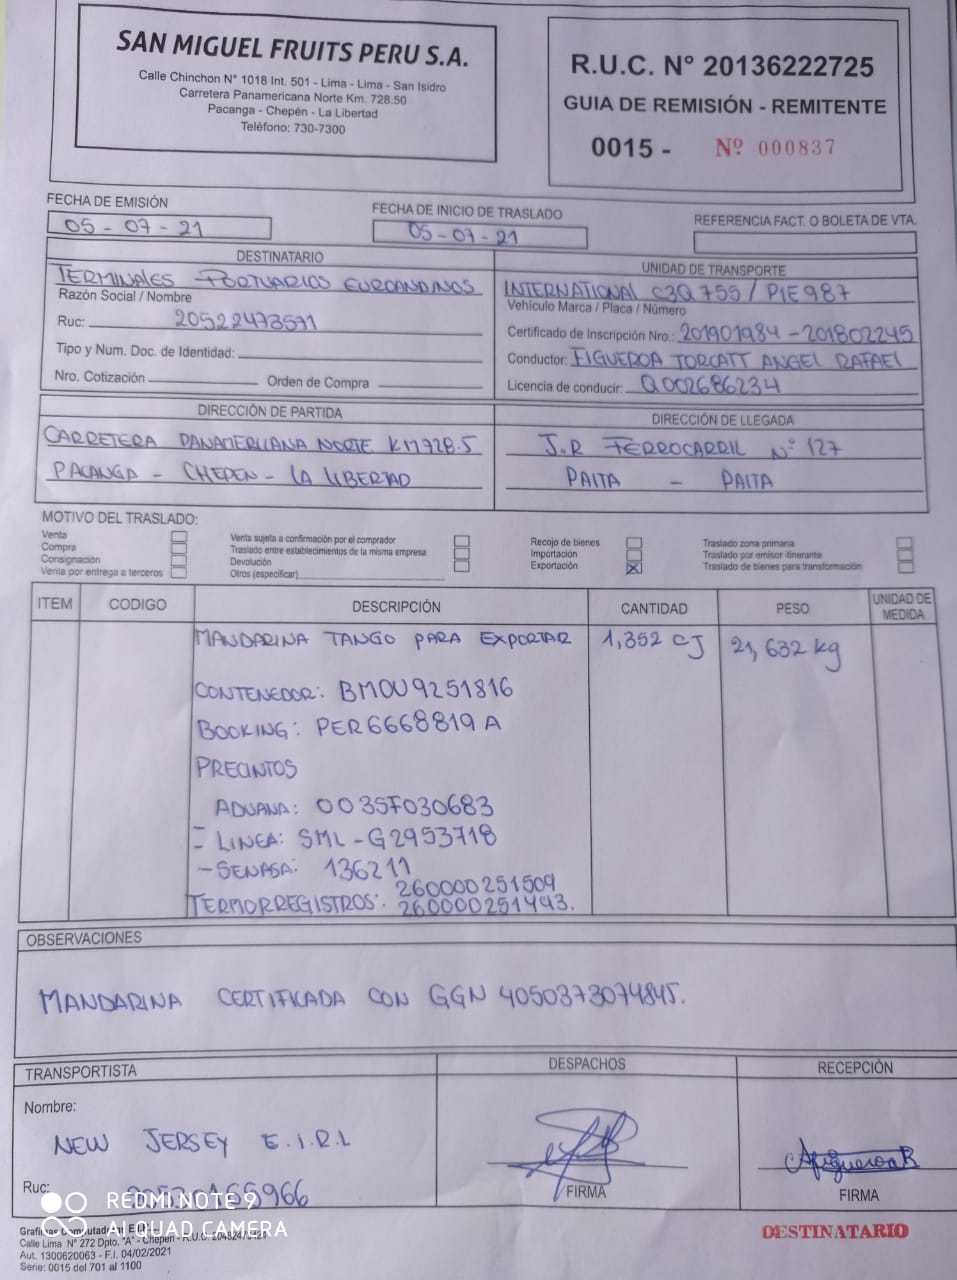 SAN MIGUEL FRUITS PERU S.A.
Calle Chinchon N° 1018 Int. 501 - Lima - Lima - San Isidro
Carretera Panamericana Norte Km. 728.50
Pacanga - Chepén - La Libertad
Teléfono: 730-7300
R.U.C. N° 20136222725
GUIA DE REMISIÓN - REMITENTE
0015 - Nº 000837
FECHA DE EMISIÓN
05-07-21
FECHA DE INICIO DE TRASLADO
05-07-21
REFERENCIA FACT. O BOLETA DE VTA.
DESTINATARIO
TERMINALES PORTUARIOS EUROANDINOS
Razón Social / Nombre
Ruc: 20522473571
Tipo y Num. Doc. de Identidad:
Nro. Cotización Orden de Compra
UNIDAD DE TRANSPORTE
INTERNATIONAL C3Q755 / P1E987
Vehículo Marca / Placa / Número
Certificado de Inscripción Nro.: 201901984 - 201802245
Conductor: FIGUEROA TORCATT ANGEL RAFAEL
Licencia de conducir: Q002686234
DIRECCIÓN DE PARTIDA
CARRETERA PANAMERICANA NORTE KM728.5
PACANGA - CHEPEN - LA LIBERTAD
DIRECCIÓN DE LLEGADA
J.R FERROCARRIL N° 127
PAITA - PAITA
MOTIVO DEL TRASLADO:
Venta
Compra
Consignación
Venta por entrega a terceros
Venta sujeta a confirmación por el comprador
Traslado entre establecimientos de la misma empresa
Devolución
Otros (especificar)
Recojo de bienes
Importación
Exportación X
Traslado zona primaria
Traslado por emisor itinerante
Traslado de bienes para transformación
ITEM CODIGO DESCRIPCIÓN CANTIDAD PESO UNIDAD DE MEDIDA
MANDARINA TANGO PARA EXPORTAR 1,352 CJ 21,632 kg
CONTENEDOR: BMOU9251816
BOOKING: PER6668819A
PRECINTOS
ADUANA: 0035F030683
- LINEA: SML-G2953718
- SENASA: 136211
TERMORREGISTROS: 260000251509
260000251493.
OBSERVACIONES
MANDARINA CERTIFICADA CON GGN 4050373074845.
TRANSPORTISTA
Nombre:
NEW JERSEY E.I.R.L
Ruc:
DESPACHOS
FIRMA
RECEPCIÓN
AfigueroaR
FIRMA
REDMI NOTE 9
AI QUAD CAMERA
Calle Lima N° 272 Dpto. "A" - Chepén - R.U.C.
Aut. 1300620063 - F.I. 04/02/2021
Serie: 0015 del 701 al 1100
DESTINATARIO